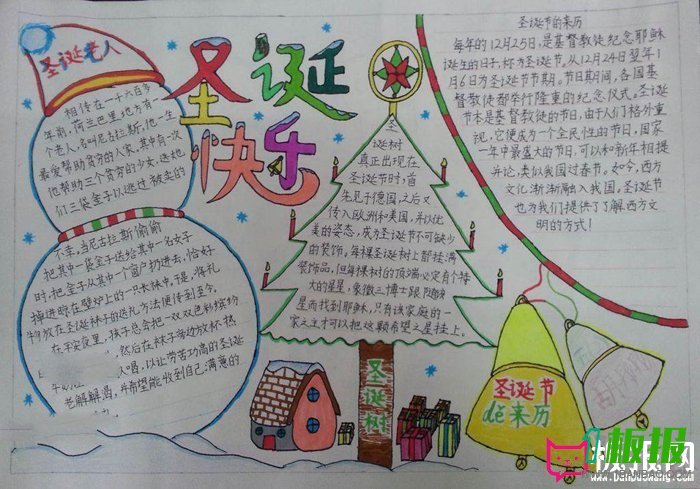 圣诞老人
相传在一千六百多
年前,荷兰巴里地方有一
个老人,名叫尼古拉斯,他一生
最爱帮助贫穷的人家,其中有一次
他帮助三个贫穷的少女,送她
们三袋金子以逃过被卖的
不幸,当尼古拉斯偷偷
把其中一袋金子送给其中一名女子
时,把金子从其中一个窗户扔进去,恰好
掉进晾在壁炉上的一只长袜中,于是,将礼
物放在圣诞袜子的送礼方法便传到至今。
在平安夜里,孩子总会把一双双色彩缤纷
然后在袜子旁边放杯热
人喝,以让劳苦功高的圣诞
老解解渴,并希望能收到自己满意的
圣诞
快乐
圣
诞树
真正出现在
圣诞节时,首
先见于德国,之后又
传入欧洲和美国,并以优
美的姿态,成为圣诞节不可缺少
的装饰。每棵圣诞树上都挂满
装饰品,但每棵树的顶端必定有个特
大的星星,象徵三博士跟随
星而找到耶稣,只有该家庭的一
家之主才可以把这颗希望之星挂上。
圣诞树
圣诞节的来历
每年的12月25日,是基督教徒纪念耶稣
诞生的日子,称为圣诞节。从12月24日翌年1
月6日为圣诞节节期。节日期间,各国基
督教徒都举行隆重的纪念仪式。圣诞
节本是基督教徒的节日,由于人们格外重
视,它便成为一个全民性的节日,国家
一年中最盛大的节日,可以和新年相提
并论,类似我国过春节。如今,西方
文化渐渐融入我国,圣诞节
也为我们提供了了解西方文
明的方式!
圣诞节
dè来历
板报网